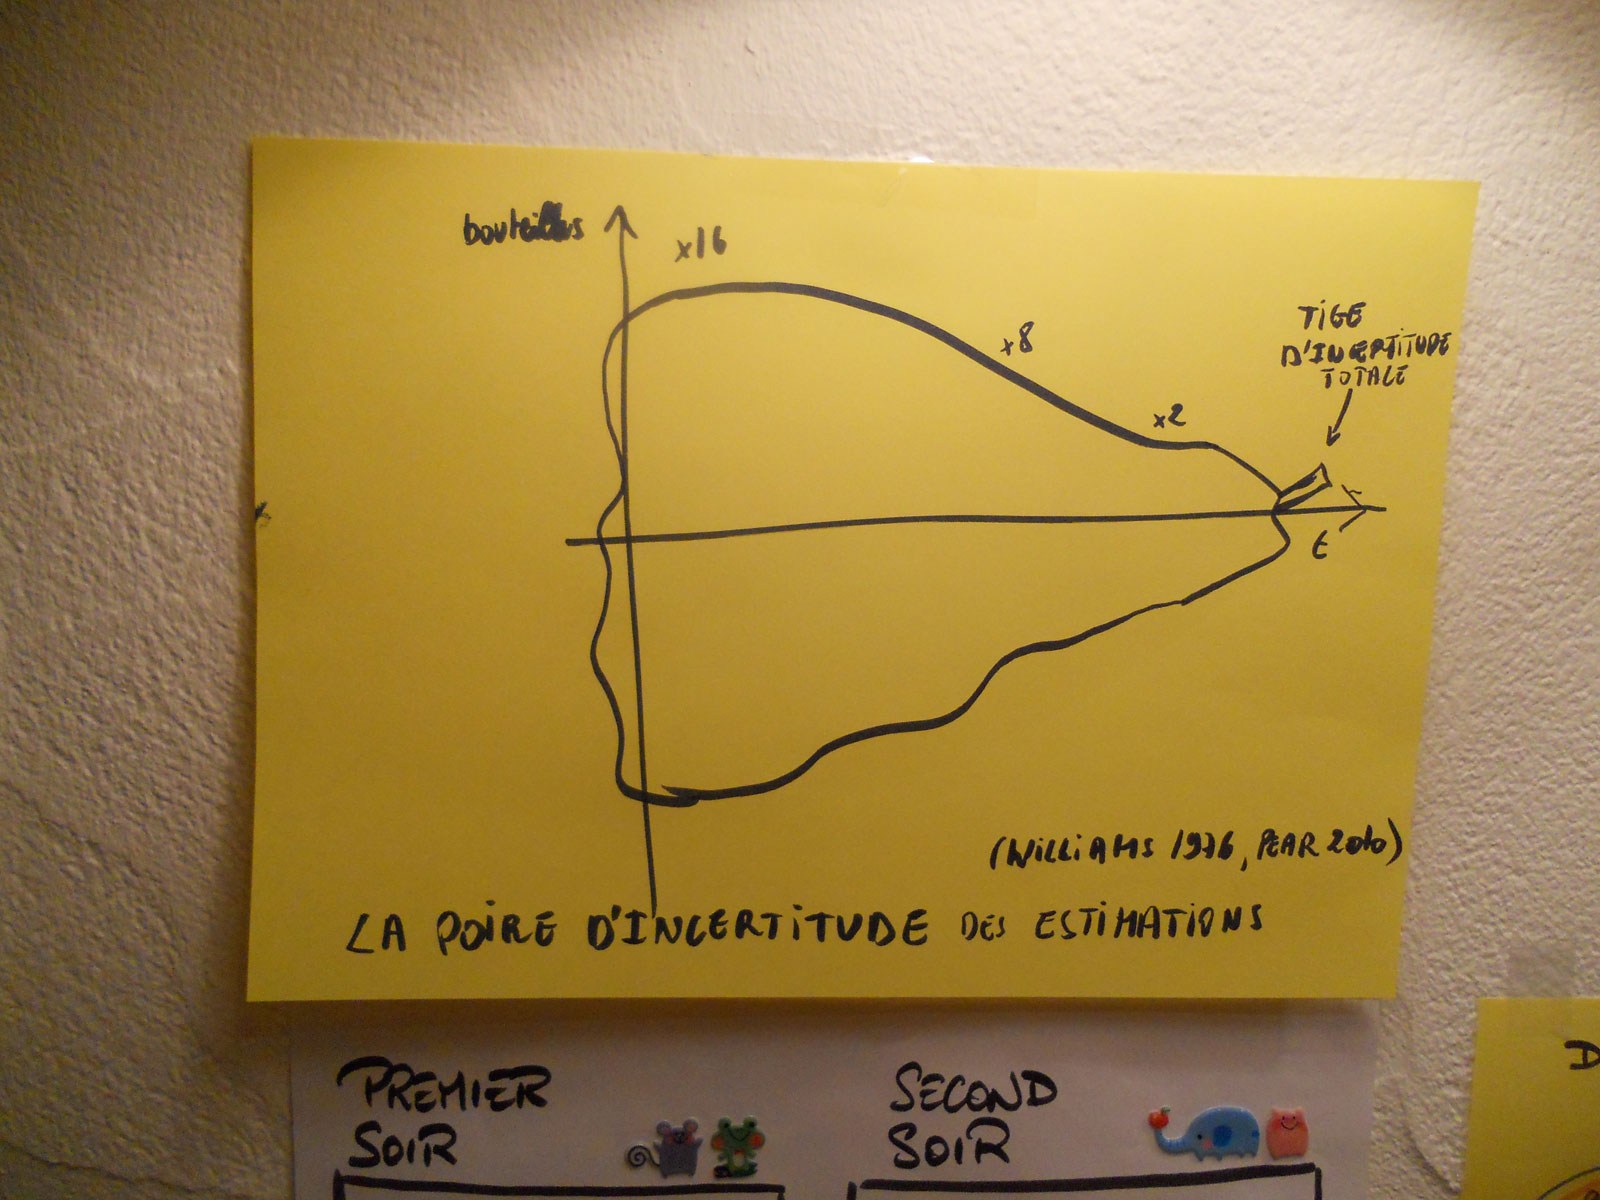 bouteilles
x16
x8
x2
TIGE
D'INCERTITUDE
TOTALE
t
(WILLIAMS 1976, PEAR 2010)
LA POIRE D'INCERTITUDE DES ESTIMATIONS
PREMIER
SOIR
SECOND
SOIR
D